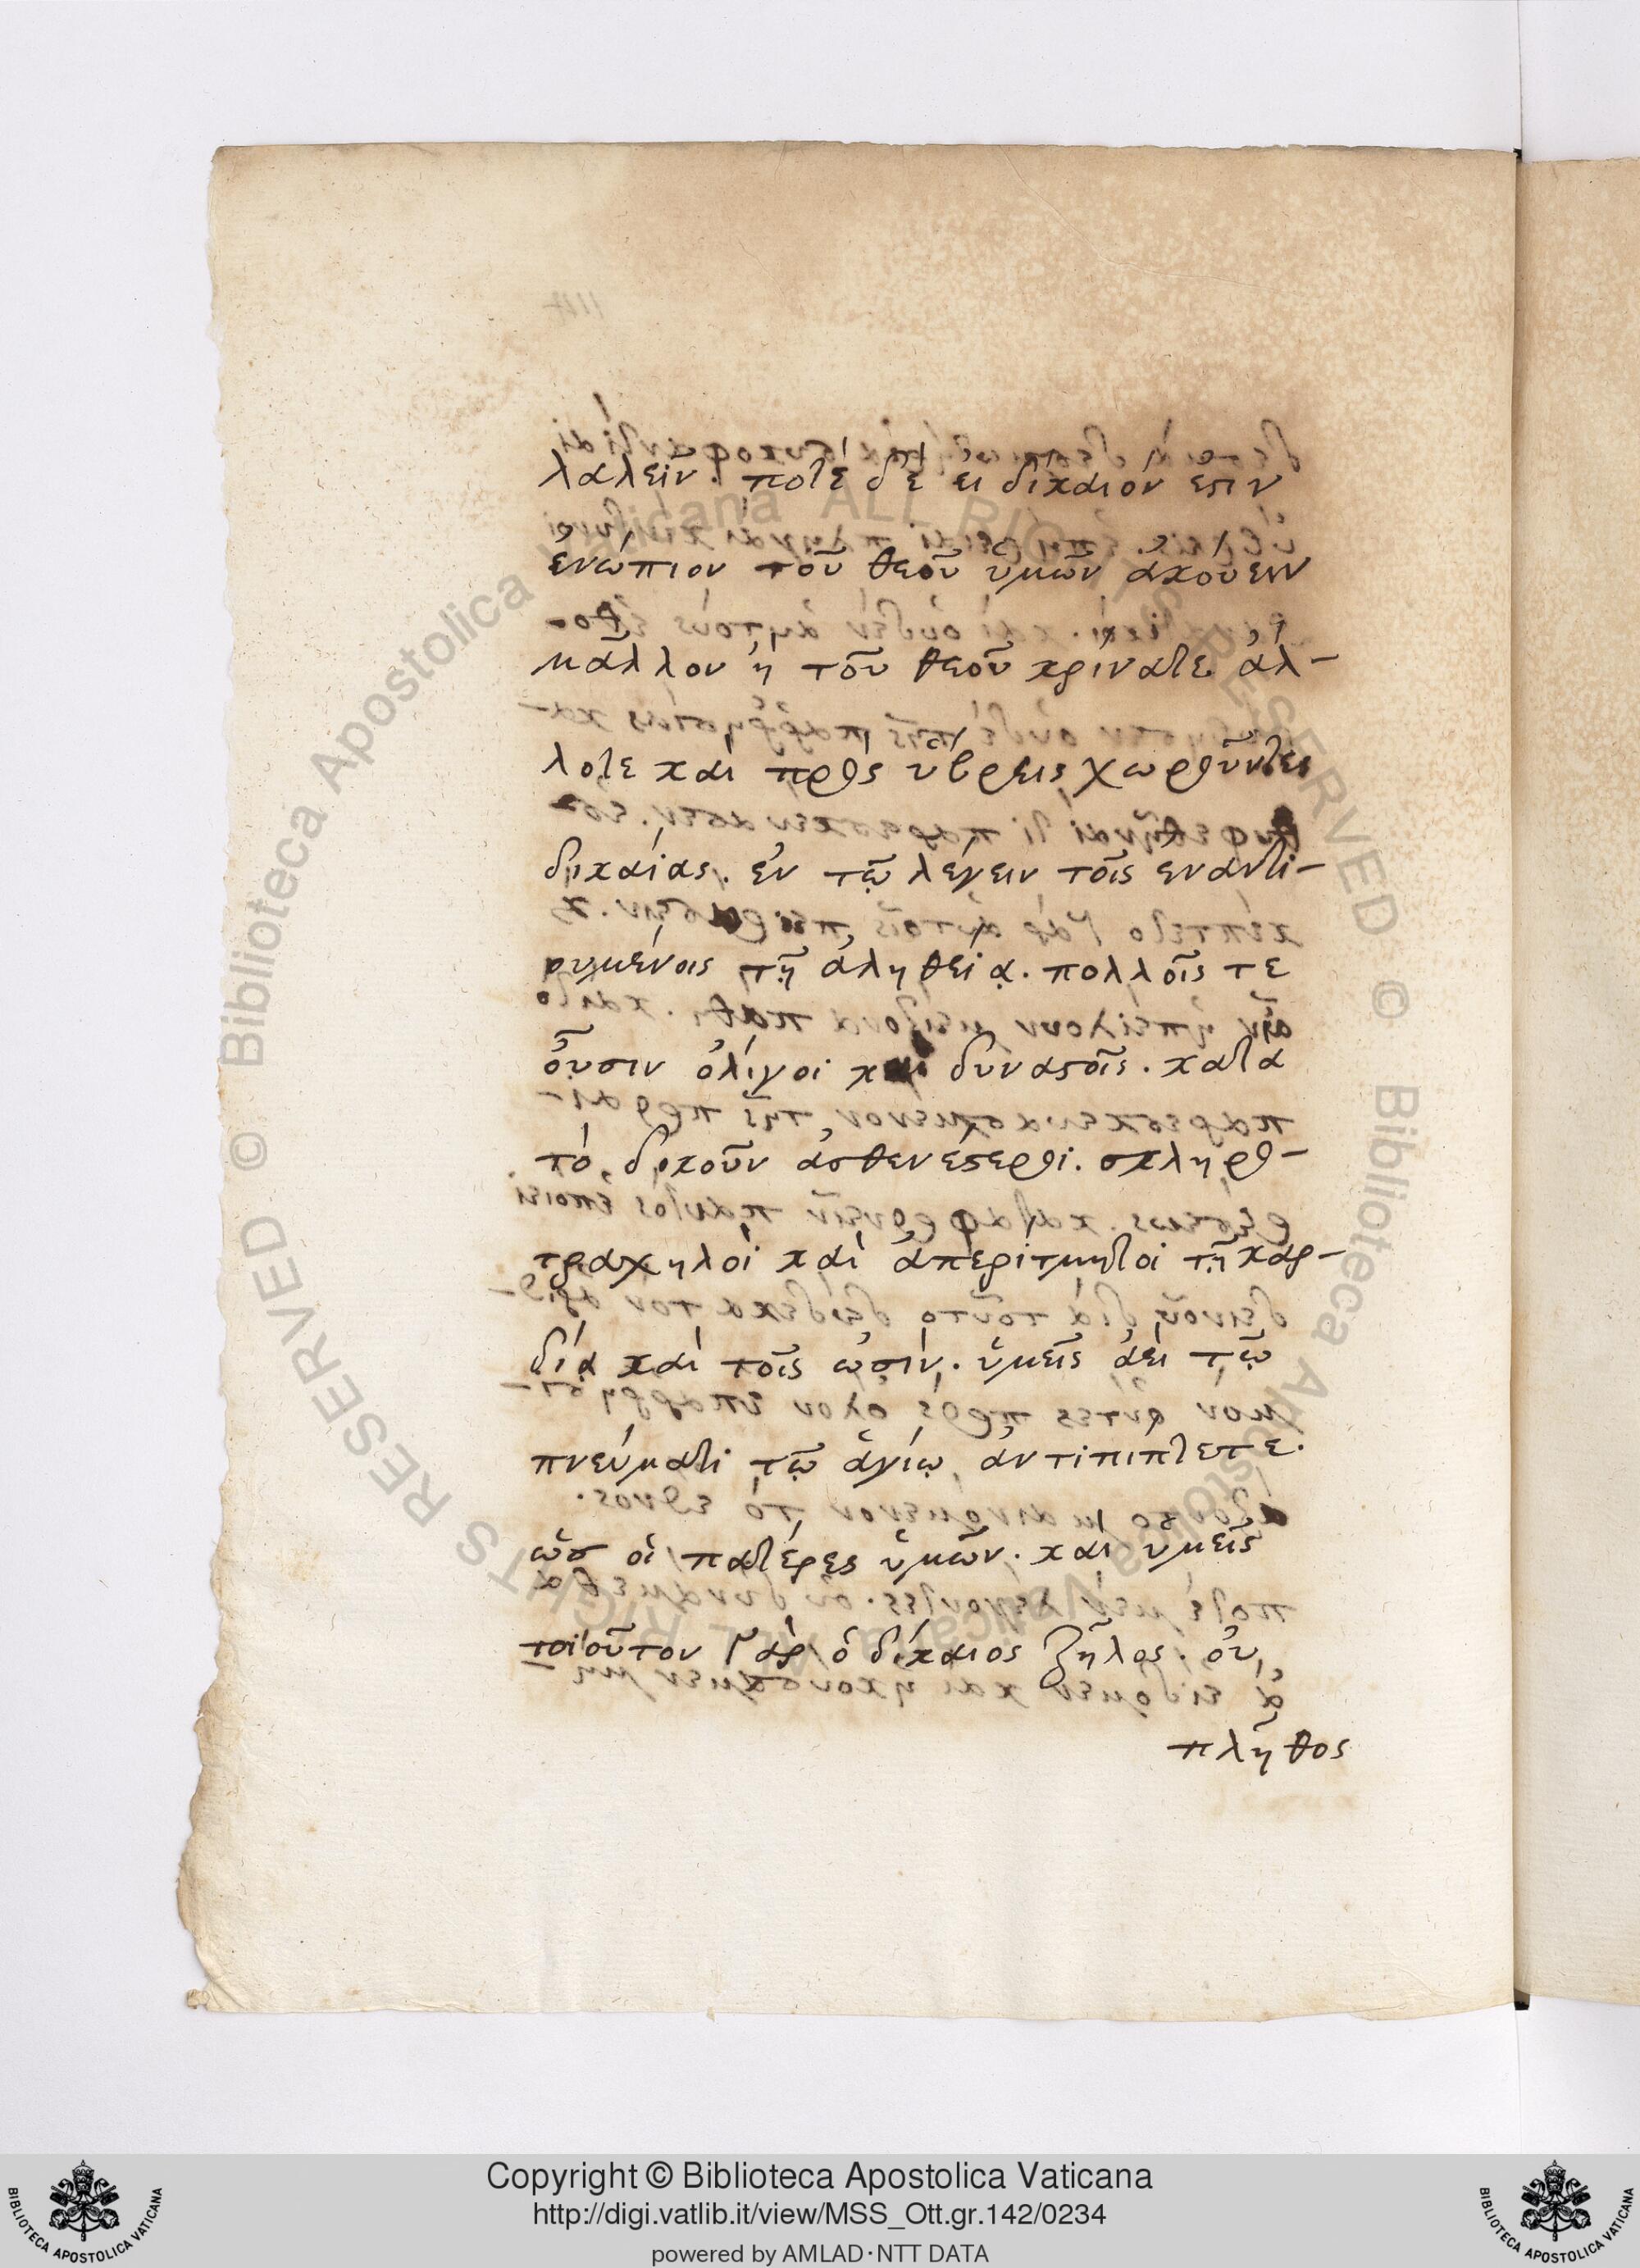 λαλεῖν. ποτὲ δὲ εἰ δίκαιόν ἐστιν
ἐνώπιον τοῦ θεοῦ ὑμῶν ἀκούειν
μᾶλλον ἢ τοῦ θεοῦ κρίνατε. ἄλ-
λοτε καὶ πρὸς ὕβρεις χωροῦντες
δικαίας. ἐν τῷ λέγειν τοῖς ἐναντι-
ουμένοις τῇ ἀληθείᾳ. πολλοῖς τε
οὖσιν ὀλίγοι καὶ δυνασταῖς. κατὰ
τὸ δοκοῦν ἀσθενέστεροι. σκληρο-
τράχηλοι καὶ ἀπερίτμητοι τῇ καρ-
δίᾳ καὶ τοῖς ὠσίν. ὑμεῖς ἀεὶ τῷ
πνεύματι τῷ ἁγίῳ ἀντιπίπτετε.
ὡς οἱ πατέρες ὑμῶν. καὶ ὑμεῖς
τοιοῦτον γὰρ ὁ δίκαιος ζῆλος. οὐ
πλῆθος
Copyright © Biblioteca Apostolica Vaticana
http://digi.vatlib.it/view/MSS_Ott.gr.142/0234
powered by AMLAD·NTT DATA
BIBLIOTECA APOSTOLICA VATICANA
BIBLIOTECA APOSTOLICA VATICANA